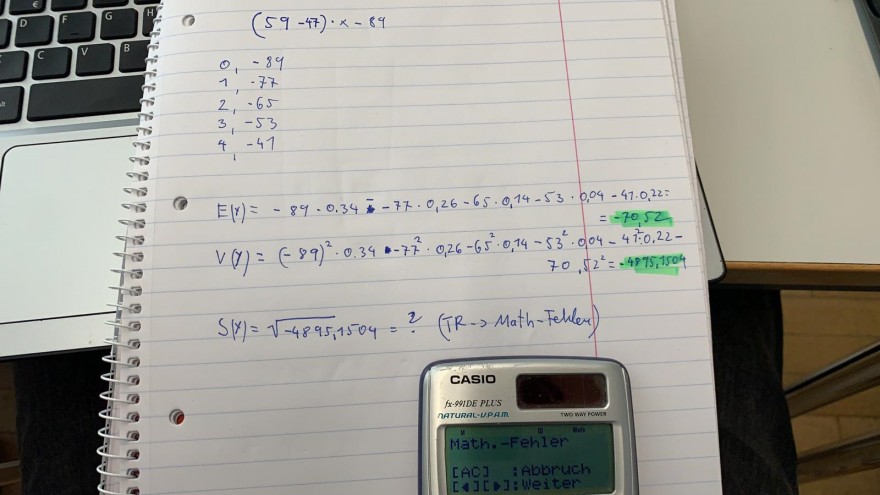 (59-47)·x - 89
0, -89
1, -77
2, -65
3, -53
4, -41
E(Y) = -89·0.34 - -77·0,26 -65·0,14 -53·0,04 -41·0,22 =
= -70,52
V(Y) = (-89)²·0.34 - -77²·0,26 -65²·0,14 -53²·0,04 -41²·0,22 -
70,52² = -4895,1504
S(Y) = √-4895,1504 = ? (TR -> Math-Fehler)
CASIO
fx-991DE PLUS
NATURAL-V.P.A.M.
TWO WAY POWER
Math
Math.-Fehler
[AC] :Abbruch
[◄][►]:Weiter
D
F
G
H
C
V
B
N
Alt